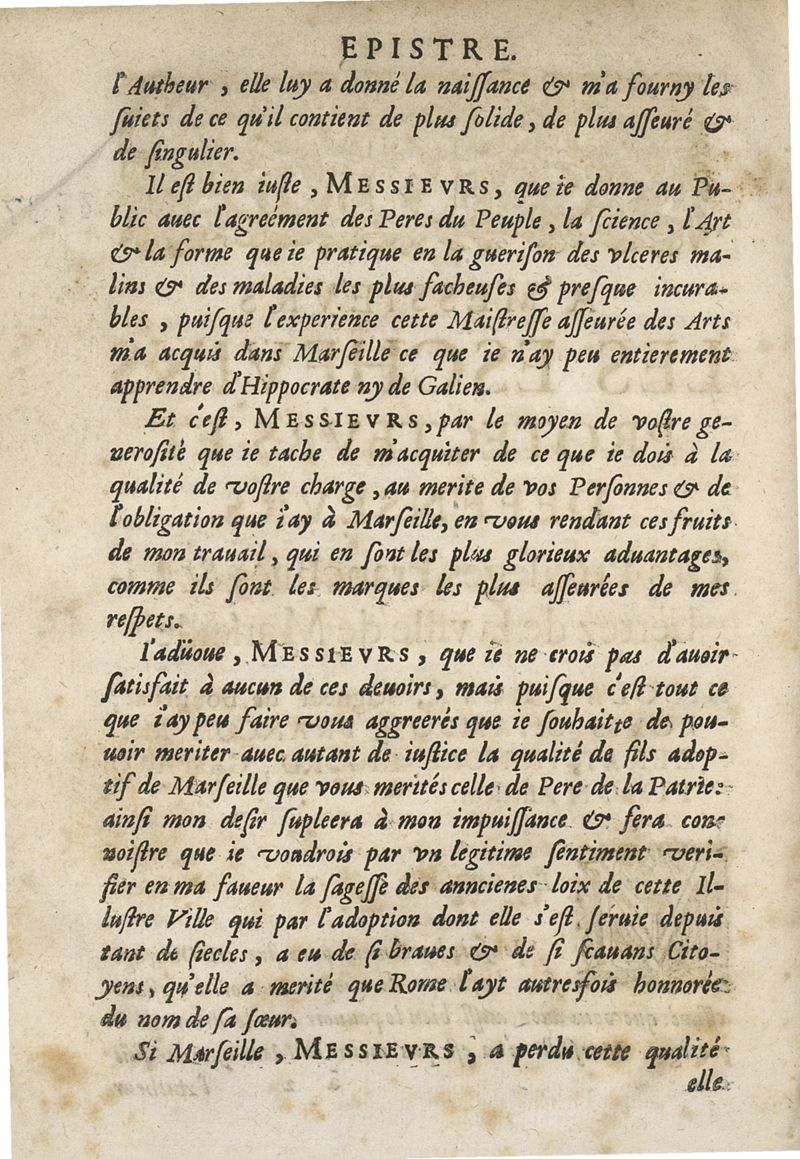 EPISTRE.
l'Autheur, elle luy a donné la naiſſance & m'a fourny les
ſuiets de ce qu'il contient de plus ſolide, de plus aſſeuré &
de ſingulier.
Il eſt bien iuſte, MESSIEVRS, que ie donne au Pu-
blic auec l'agreément des Peres du Peuple, la ſcience, l'Art
& la forme que ie pratique en la gueriſon des vlceres ma-
lins & des maladies les plus facheuſes & preſque incura-
bles, puiſque l'experience cette Maiſtreſſe aſſeurée des Arts
m'a acquis dans Marſeille ce que ie n'ay peu entierement
apprendre d'Hippocrate ny de Galien.
Et c'eſt, MESSIEVRS, par le moyen de voſtre ge-
neroſité que ie tache de m'acquiter de ce que ie dois à la
qualité de voſtre charge, au merite de vos Perſonnes & de
l'obligation que i'ay à Marſeille, en vous rendant ces fruits
de mon trauail, qui en ſont les plus glorieux aduantages,
comme ils ſont les marques les plus aſſeurées de mes
reſpets.
I'adüoue, MESSIEVRS, que ie ne crois pas d'auoir
ſatisfait à aucun de ces deuoirs, mais puiſque c'eſt tout ce
que i'ay peu faire vous aggreerés que ie ſouhaitte de pou-
uoir meriter auec autant de iuſtice la qualité de fils adop-
tif de Marſeille que vous merités celle de Pere de la Patrie:
ainſi mon deſir ſupleera à mon impuiſſance & fera con-
noiſtre que ie voudrois par vn legitime ſentiment veri-
fier en ma faueur la ſageſſe des anncienes loix de cette Il-
luſtre Ville qui par l'adoption dont elle s'eſt ſeruie depuis
tant de ſiecles, a eu de ſi braues & de ſi ſcauans Cito-
yens, qu'elle a merité que Rome l'ayt autresfois honnorée
du nom de ſa ſœur.
Si Marſeille, MESSIEVRS, a perdu cette qualité
elle